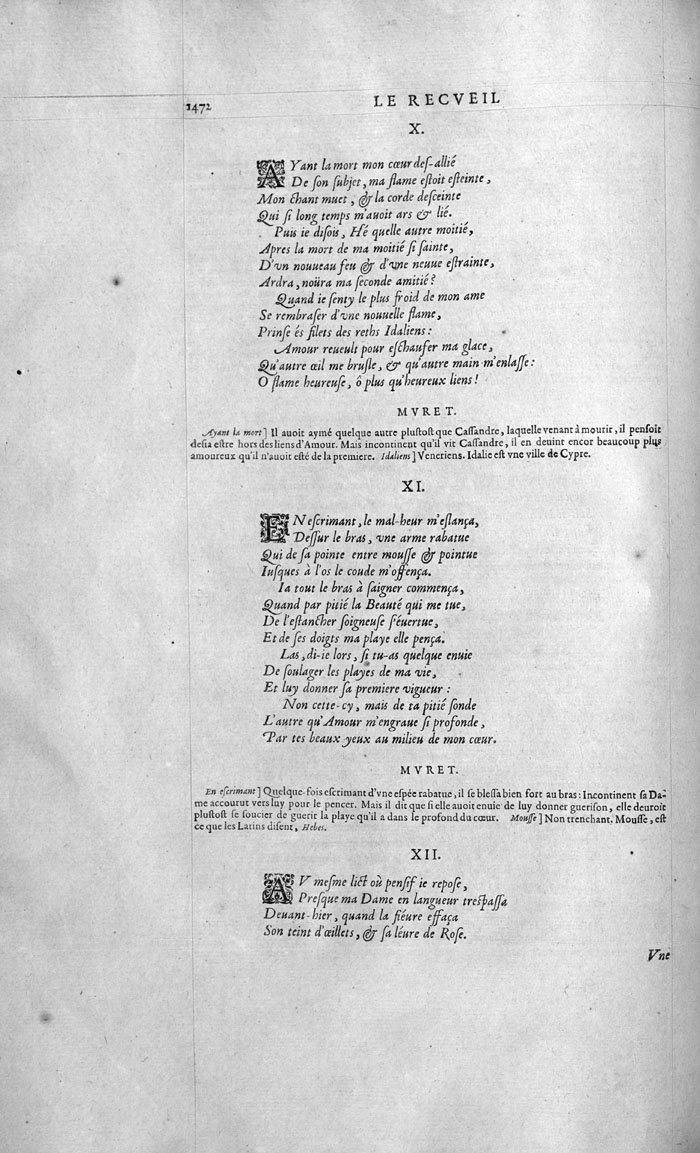 1472
LE RECVEIL
X.
AYant la mort mon cœur deſ-allié
De ſon ſubjet, ma flame eſtoit eſteinte,
Mon chant muet, & la corde deſceinte
Qui ſi long temps m'auoit ars & lié.
Puis ie diſois, Hé quelle autre moitié,
Apres la mort de ma moitié ſi ſainte,
D'vn nouueau feu & d'vne neuue eſtrainte,
Ardra, noüra ma ſeconde amitié?
Quand ie ſenty le plus froid de mon ame
Se rembraſer d'vne nouuelle flame,
Prinſe és filets des reths Idaliens:
Amour reueult pour eſchaufer ma glace,
Qu'autre œil me bruſle, & qu'autre main m'enlaſſe:
O flame heureuſe, ô plus qu'heureux liens!
MVRET.
Ayant la mort] Il auoit aymé quelque autre pluſtoſt que Caſſandre, laquelle venant à mourir, il penſoit
deſia eſtre hors des liens d'Amour. Mais incontinent qu'il vit Caſſandre, il en deuint encor beaucoup plus
amoureux qu'il n'auoit eſté de la premiere. Idaliens] Veneriens. Idalie eſt vne ville de Cypre.
XI.
EN eſcrimant, le mal-heur m'eſlança,
Deſſur le bras, vne arme rabatue
Qui de ſa pointe entre mouſſe & pointue
Iuſques à l'os le coude m'offença.
Ia tout le bras à ſaigner commença,
Quand par pitié la Beauté qui me tue,
De l'eſtancher ſoigneuſe ſ'éuertue,
Et de ſes doigts ma playe elle pença.
Las, di-ie lors, ſi tu-as quelque enuie
De ſoulager les playes de ma vie,
Et luy donner ſa premiere vigueur:
Non cette-cy, mais de ta pitié ſonde
L'autre qu'Amour m'engraue ſi profonde,
Par tes beaux yeux au milieu de mon cœur.
MVRET.
En eſcrimant] Quelque-fois eſcrimant d'vne eſpée rabatue, il ſe bleſſa bien fort au bras: Incontinent ſa Da-
me accourut vers luy pour le pencer. Mais il dit que ſi elle auoit enuie de luy donner gueriſon, elle deuroit
pluſtoſt ſe ſoucier de guerir la playe qu'il a dans le profond du cœur. Mouſſe] Non trenchant. Mouſſe, eſt
ce que les Latins diſent, Hebes.
XII.
AV meſme lict où penſif ie repoſe,
Preſque ma Dame en langueur treſpaſſa
Deuant-hier, quand la fiéure effaça
Son teint d'œillets, & ſa léure de Roſe.
Vne